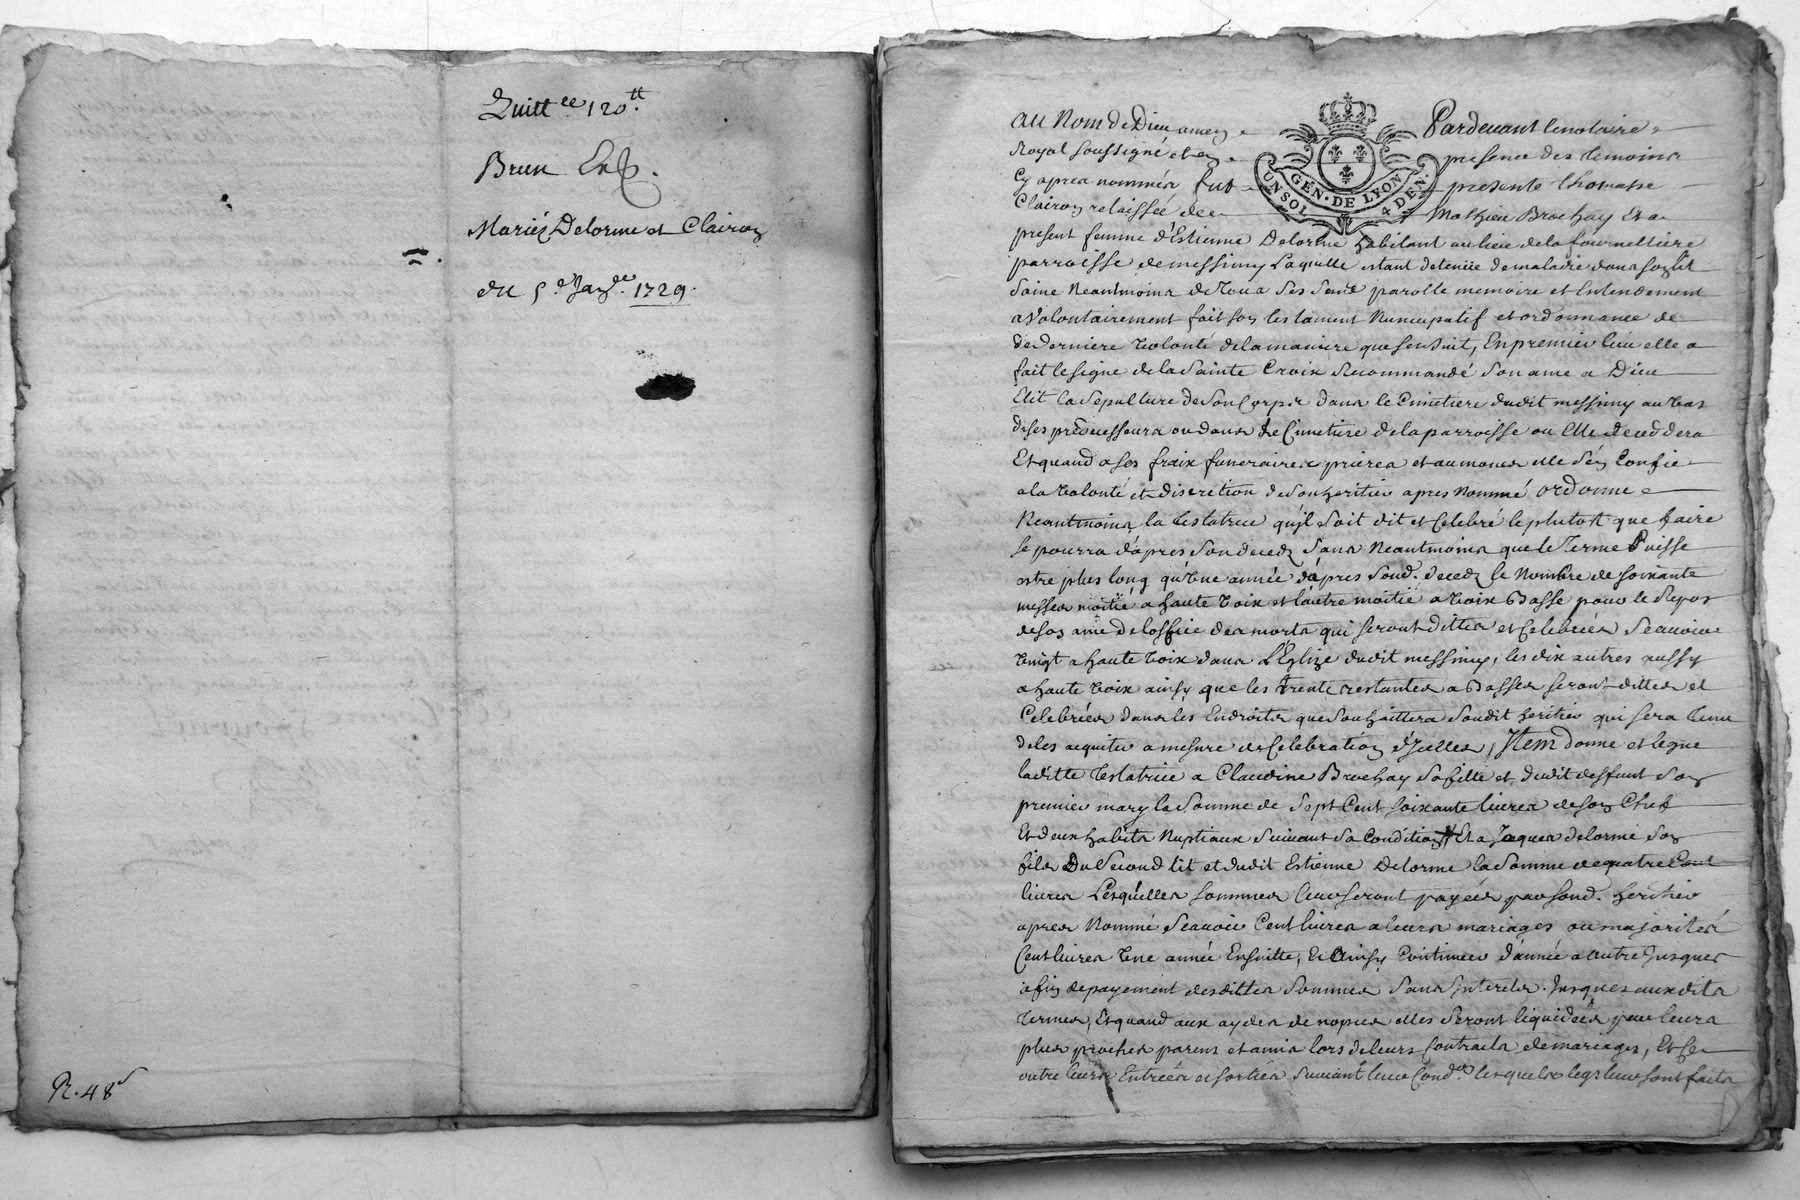 Quitt.ce 120.tt
Brun
Mariés Delorme et Clairon
du 5.e Janv.r 1729.
R. 48 s
Au Nom de Dieu amen Pardevant le notaire
Royal soussigné et en presence des temoins
Cy apres nommés fut presente thomasse
Clairon relaissée de Mathieu Brochay et a
present femme d'Estienne Delorme habitant au lieu de la fourneltiere
parroisse de messimy Laquelle estant detenüe de maladie dans son lit
saine Neantmoins de tous ses sens parolle memoire et Entendement
a Volontairement fait son testament Nuncupatif et ordonnance de
de derniere Volonté de la maniere que sensuit, En premier lieu elle a
fait le signe de la Sainte Croix Recommandé son ame a Dieu
Elit la sepulture de son Corps dans le Cimetiere dudit messimy au tas
de ses predecesseurs ou dans le Cimetiere de la parroisse ou Elle decedera
Et quand a ses fraix funeraires prieres et aumones elle s'en Confie
a la Volonté et discretion de son heritier apres Nommé ordonne
Neantmoins la testatrice qu'il soit dit et Celebré le plutost que faire
se pourra d'apres son decedz sans Neantmoins que le Terme Puisse
estre plus long qu'Une année d'apres sond. decedz le Nombre de soixante
messes moitié a haute Voix et l'autre moitié a Voix Basse pour le Repos
de son ame de l'office des morts qui seront dittes et Celebrées Scavoir
Vingt a haute Voix dans L'Eglize dudit messimy, les dix autres aussy
a haute Voix ainsy que les trente restantes a Basses seront dittes et
Celebrées dans les Endroits que souhaittera sondit heritier qui sera Tenu
de les acquiter a mesure de Celebration d'Jcelles, Jtem donne et legue
laditte testatrice a Claudine Brochay sa fille et dudit deffunt son
premier mary la somme de Sept Cent soixante livres de son Chef
Et deux habits Nuptiaux suivant sa Condition Et a Jaques delorme son
fils Du second lit et dudit Estienne Delorme la somme de quatre Cent
livres Lesquelles sommes leur seront payées par sond. heritier
apres Nommé Scavoir Cent livres a leurs mariages ou majorités
Cent livres Une année Ensuitte, et Ainsy Continuer d'année a autre Jusques
a fin de payement desdittes sommes sans Jnterets Jusques auxdits
termes, Et quand aux aydes de nopces elles seront liquidées par leurs
plus proches parens et amis lors de leurs Contracts de mariages, Et se
outre leurs Entrées et sorties suivant leur Cond.on lesquels legs leur sont faits